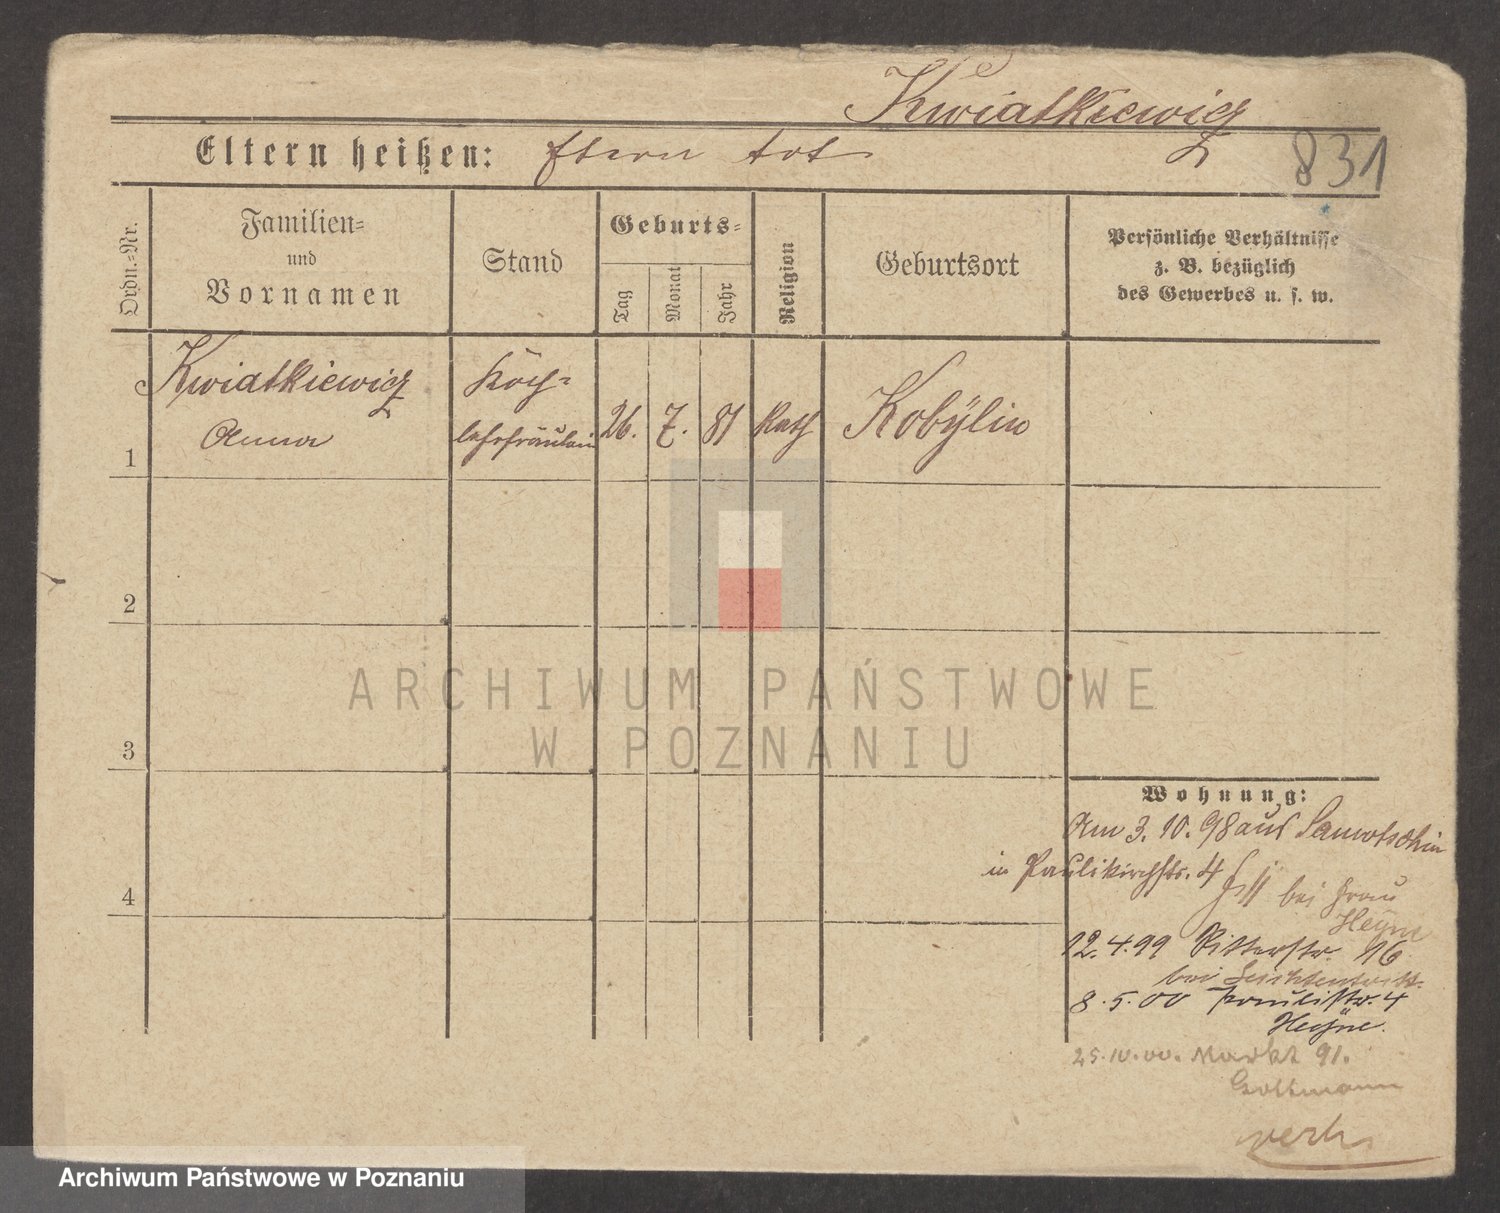 Kwiatkiewicz
Eltern heißen: Eltern tot
831
Ordn.-Nr.
Familien-
und
Vornamen
Stand
Geburts-
Tag
Monat
Jahr
Religion
Geburtsort
Persönliche Verhältnisse
z. B. bezüglich
des Gewerbes u. s. w.
1
Kwiatkiewicz
Anna
Koch-
lehrfräulein
26.
7.
81
Kath
Kobylin
2
ARCHIWUM PAŃSTWOWE
W POZNANIU
3
4
Wohnung:
Am 3. 10. 98 aus Samotschin
in Paulikirchstr. 4
bei Frau
Heyne
12.4.99 Ritterstr. 16
bei Leichtentritt
8.5.00 Paulistr. 4
Heyne.
25.10.00. Markt 91.
Gottmann
verh.
Archiwum Państwowe w Poznaniu